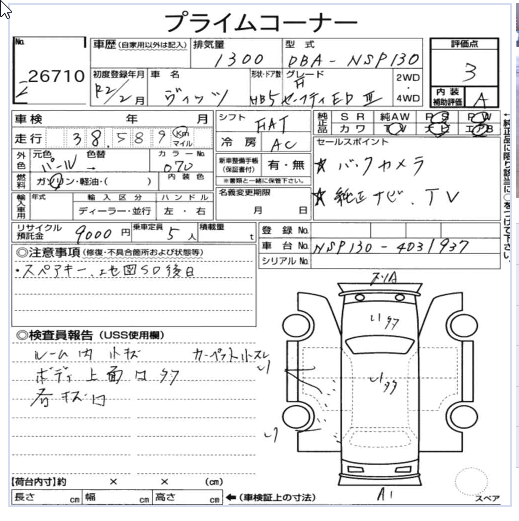 プライムコーナー
No.
26710
車歴 (自家用以外は記入)
排気量
1300
型式
DBA-NSP130
評価点
3
初度登録年月
R2/2月
車名
ヴィッツ
形状・ドア数
HB5
グレード
F
セーフティEDⅢ
2WD
・
4WD
内装
補助評価
A
車検 年 月
走行 38,589 Km
マイル
シフト
FAT
冷房
AC
純正品
SR 純AW PS PW
カワ TV ナビ エアB
セールスポイント
★ バックカメラ
★ 純正ナビ、TV
外色
元色
パール
色替
→
カラーNo.
070
燃料
ガソリン・軽油・( )
内装色
新車整備手帳
(保証書付)
有・無
※書類と一緒に保管下さい。
輸入車用
年式
輸入区分
ディーラー・並行
ハンドル
左・右
名義変更期限
月 日
リサイクル預託金
9000円
乗車定員
5人
積載量
t
登録No.
車台No.
NSP130-4031937
シリアルNo.
◎注意事項 (修復・不具合箇所および状態等)
・スペアキー、地図SD後日
◎検査員報告 (USS使用欄)
ルーム内小キズ カーペット小スレ
ボディ上面
【荷台内寸】約 × × (cm)
長さ cm 幅 cm 高さ cm
←(車検証上の寸法)
A1
スペア